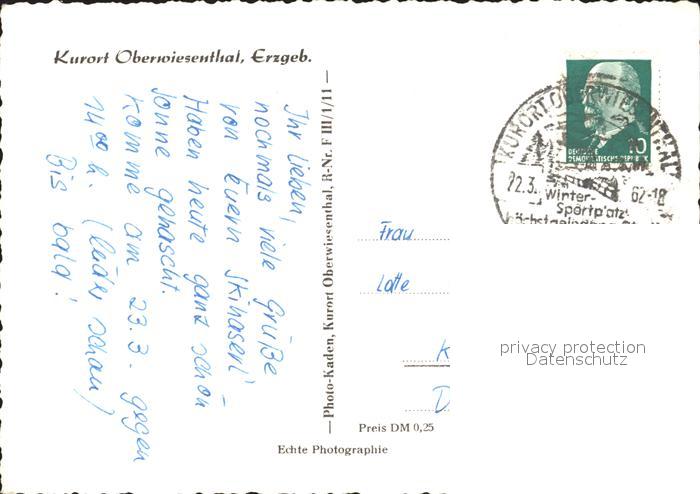 Kurort Oberwiesenthal, Erzgeb.
Ihr Lieben,
nochmals viele Grüße
von Euern Skihaserl
Haben heute ganz schön
Sonne gehascht.
Komme am 23.3. gegen
14 00 h. (leider schon)
Bis bald!
Photo-Kaden, Kurort Oberwiesenthal, R-Nr. F III/1/11
DEUTSCHE
DEMOKRATISCHE REPUBLIK
10
KURORT OBERWIESENTHAL
22.3. 62-18
Winter-
Sportplatz
Frau
Lotte
K
D
privacy protection
Datenschutz
Preis DM 0,25
Echte Photographie